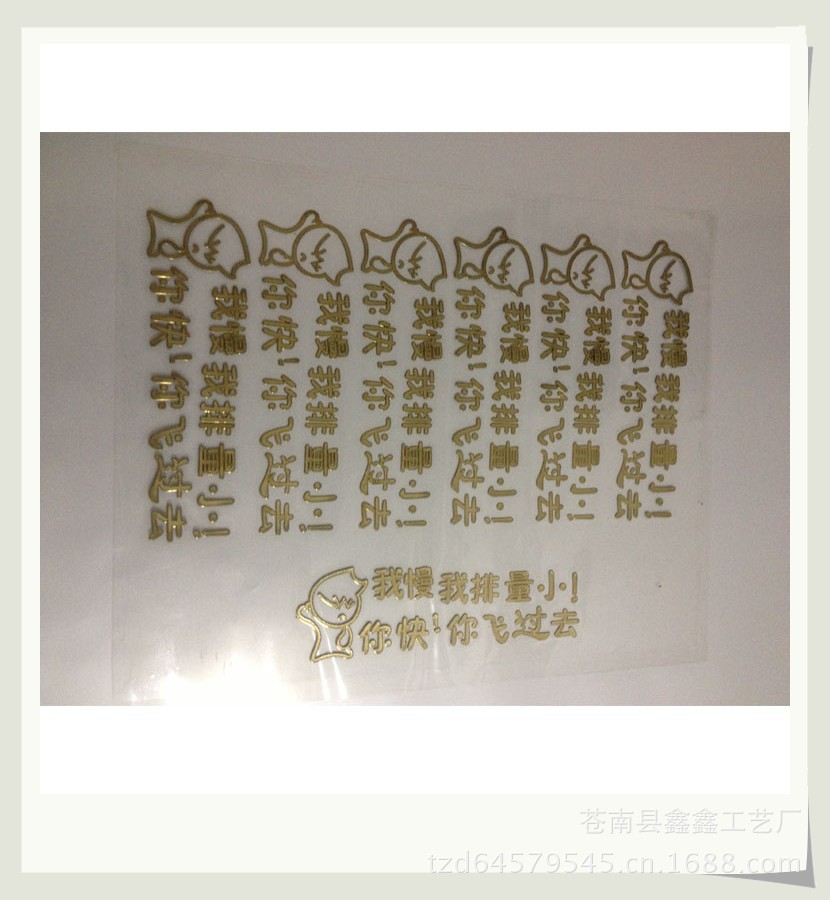 我慢我排量小!
你快!你飞过去
我慢我排量小!
你快!你飞过去
我慢我排量小!
你快!你飞过去
我慢我排量小!
你快!你飞过去
我慢我排量小!
你快!你飞过去
我慢我排量小!
你快!你飞过去
我慢我排量小!
你快!你飞过去
苍南县鑫鑫工艺厂
tzd64579545.cn.1688.com